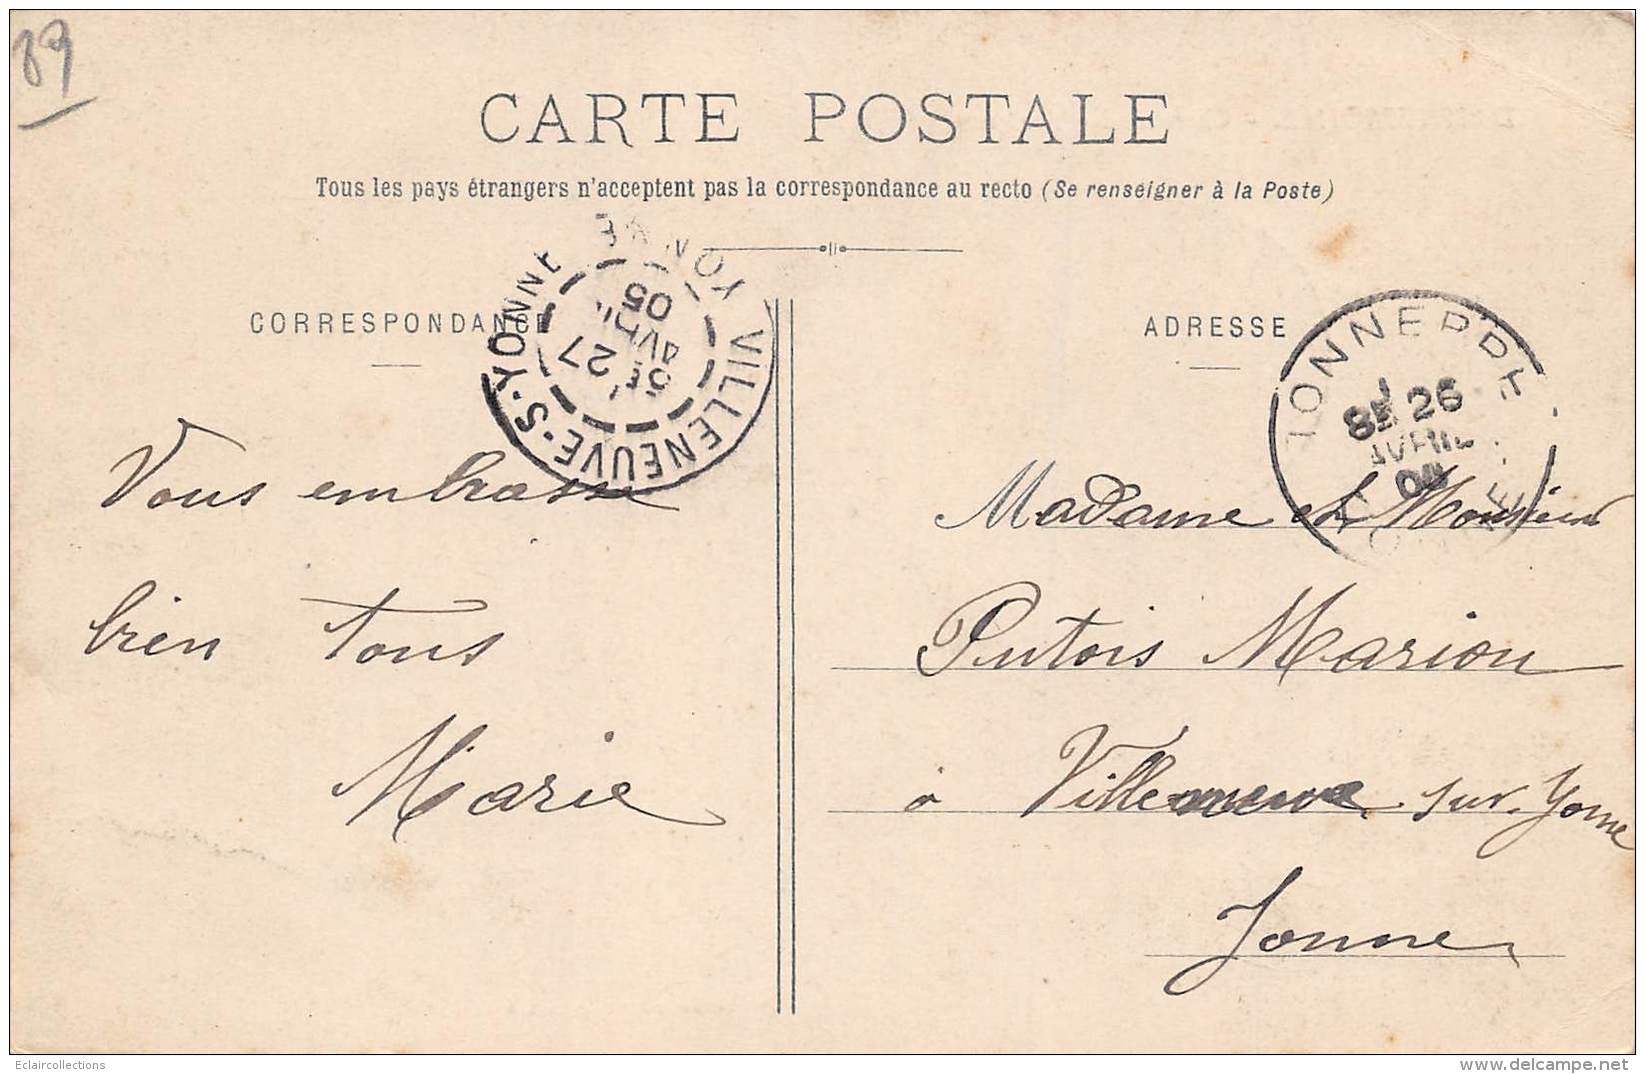 89
CARTE POSTALE
Tous les pays étrangers n'acceptent pas la correspondance au recto (Se renseigner à la Poste)
CORRESPONDANCE
Vous embrasse
bien tous
Marie
VILLENEUVE-S-YONNE YONNE
5E 27
AVRIL
05
ADRESSE
8E 26
AVRIL
Madame et Monsieur
Putois Marion
à Villeneuve sur Yonne
Yonne
Eclaircollections
www.delcampe.net